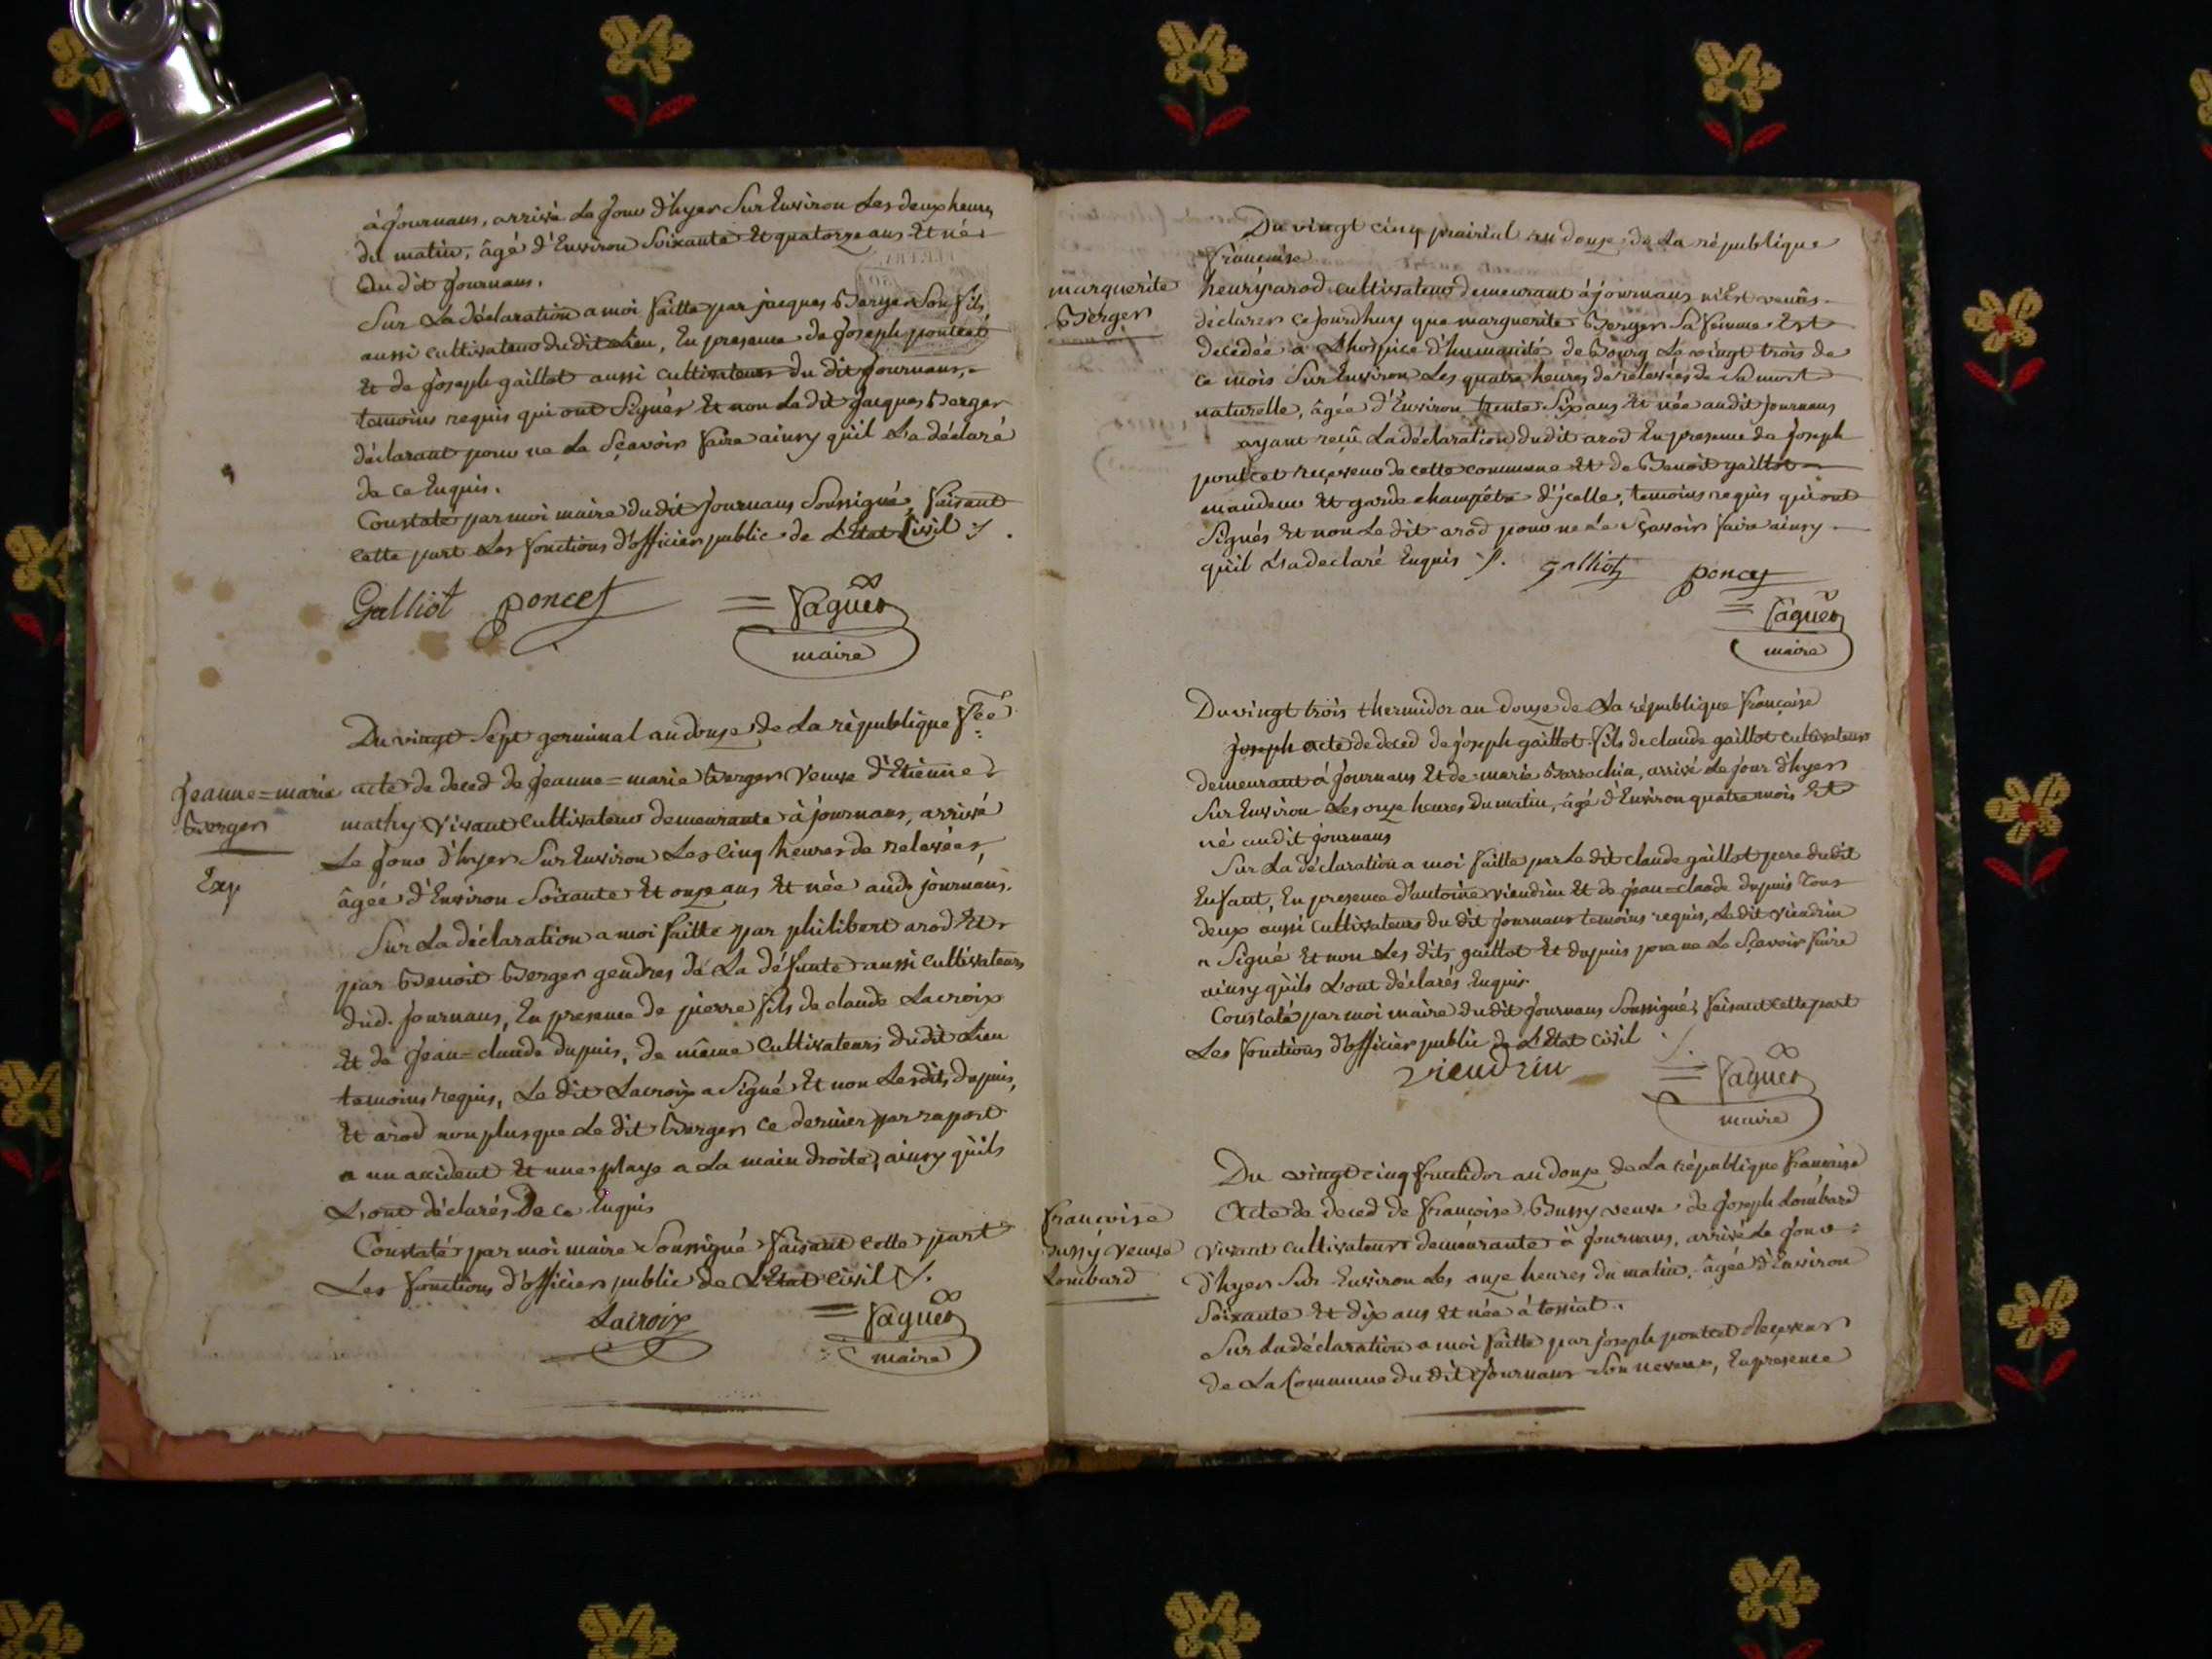 à Journans, arrivé Le Jour d'hyer Sur Environ Les deux heures
du matin, âgé d'Environ Soixante Et quatorze ans Et né
Au dit Journans.
Sur La déclaration a moi faitte par jacques Berger Son fils
aussi cultivateur du dit Lieu, En presence de Joseph pontcet
Et de Joseph gaillot aussi cultivateurs du dit Journans,
temoins requis qui ont Signés Et non Le dit Jacques Berger
déclarant pour ne Le Sçavoir faire ainsy qu'il L'a déclaré
de ce Enquis.
Constaté par moi maire du dit Journans Soussigné, faisant
cette part Les fonctions d'officier public de L'Etat Civil ./.
Galliot poncet = faguer
maire
Du vingt Sept germinal an douze de La république fse
Jeanne=marie
Berger
Exp
acte de deced de Jeanne=marie Berger Veuve d'Etienne
mathy Vivant Cultivateur demeurante à journans, arrivé
Le Jour d'hyer Sur Environ Les Cinq heures de relevées,
âgée d'Environ Soixante Et onze ans Et née aud. journans.
Sur La déclaration a moi faitte par philibert arod Et
par Benoit Berger gendres de La défunte aussi Cultivateurs
dud. Journans, En presence de pierre fils de claude Lacroix
Et de Jean=claude dupuis, de même Cultivateurs dudit Lieu
temoins requis, Le dit Lacroix a Signé Et non Lesdits dupuis,
Et arod non plus que Le dit Berger ce dernier par raport
a un accident Et une playe a La main droite, ainsy qu'ils
L'ont déclarés De ce Enquis
Constaté par moi maire Soussigné faisant cette part
Les fonctions d'officier public de L'Etat Civil ./.
Lacroix = faguer
maire
Du vingt cinq prairial an douze de La république
françaíse
marguerite
Berger
henry arod cultivateur demeurant à journans m'Est venûs
déclarer ce jourdhuy que marguerite Berger Sa femme Est
decedée a L'hospice d'humanité de Bourg Le vingt trois de
ce mois Sur Environ Les quatre heures de relevées de Sa mort
naturelle, âgée d'Environ trente Six ans Et née audit Journans
ayant reçû La déclaration dudit arod En presence de Joseph
pontcet reçeveur de cette commune Et de Benoit gaillot
mandeur Et garde champêtre d'jcelle, temoins requis qui ont
Signés Et non Le dit arod pour ne Le Sçavoir faire ainsy
qu'il L'a declaré Enquis ./. galliot poncet
= faguer
maire
Du vingt trois thermidor an douze de La république française
Joseph acte de deced de Joseph gaillot fils de claude gaillot cultivateur
demeurant à Journans Et de marie Barrachin, arrivé Le jour d'hyer
Sur Environ Les onze heures du matin, âgé d'Environ quatre mois Et
né audit Journans
Sur La déclaration a moi faitte par Le dit claude gaillot pere dudit
Enfant, En presence d'antoine viendrin Et de Jean=claude dupuis tous
deux aussi Cultivateurs du dit Journans temoins requis, Le dit viendrin
a Signé Et non Les dits gaillot Et dupuis pour ne Le Sçavoir faire
ainsy qu'ils L'ont déclarés Enquis
Constaté par moi maire du dit Journans Soussigné, faisant cette part
Les fonctions d'officier public de L'Etat civil ./.
viendrin = faguer
maire
Du vingt cinq fructidor an douze de La république française
françoise
Bussy veuve
Lombard
Acte de deced de françoise Bussy veuve de Joseph Lombard
Vivant cultivateur demeurante à Journans, arrivé Le Jour
d'hyer Sur Environ Les onze heures du matin, âgée d'Environ
Soixante Et dix ans Et née à tossiat.
Sur La déclaration a moi faitte par joseph pontcet Reçeveur
de La Commune du dit Journans Son neveu, En presence